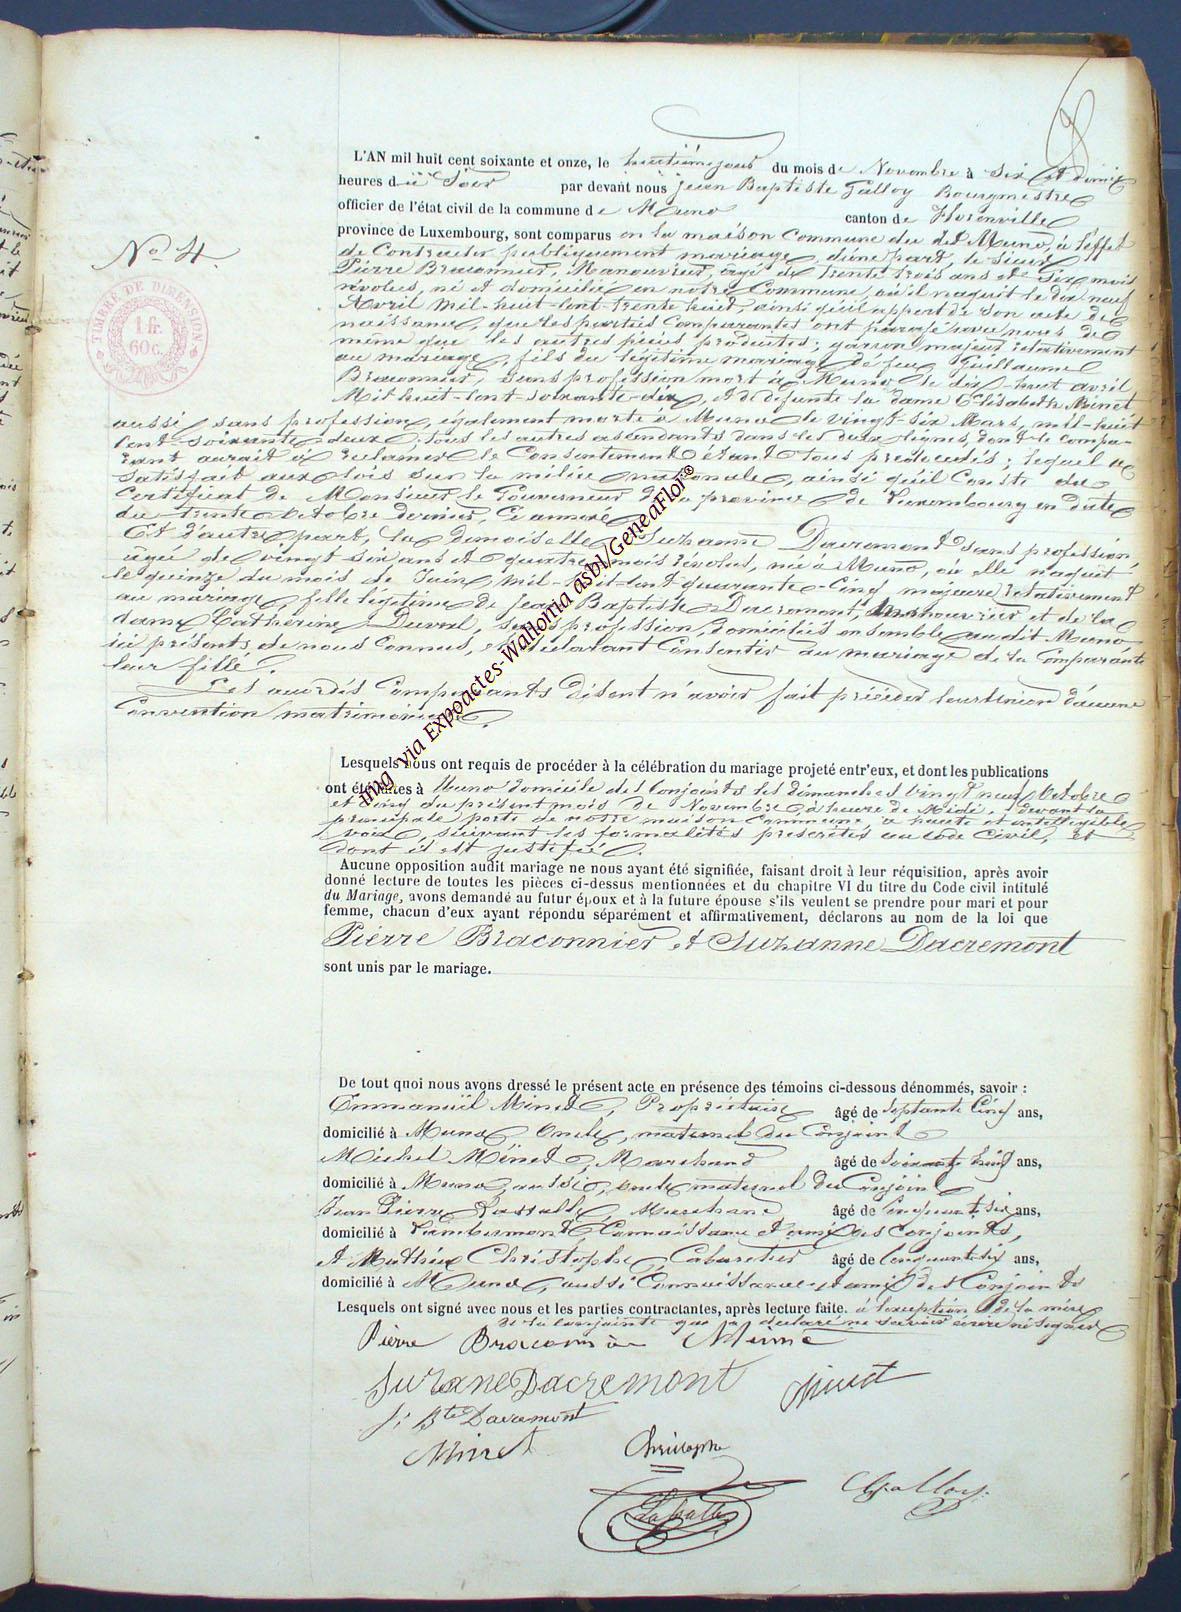 8
L'AN mil huit cent soixante et onze, le huitième jour du mois de Novembre à Six et demie
heures du Soir par devant nous jean Baptiste Galloy Bourgmestre
officier de l'état civil de la commune de Muno canton de Florenville
province de Luxembourg, sont comparus en la maison Commune du dit Muno, à l'effet
No 4.
de Contracter publiquement mariage, d'une part, le sieur
Pierre Braconnier, Manouvrier, agé de trente trois ans et Six mois
révolus, né et domicilié en notre Commune, où il naquit le dix neuf
Avril Mil-huit-Cent-trente huit, ainsi qu'il appert de son acte de
naissance, que les parties Comparantes ont paraphé avec nous de
même que les autres pièces produites; garçon majeur relativement
au mariage, fils du légitime mariage de feu Guillaume
Braconnier, sans profession, mort à Muno le dix-huit avril
Mil huit-Cent-soixante-dix, et de défunte la dame Elisabeth Minet
TIMBRE DE DIMENSION
1 fr.
60 c.
aussi sans profession, également morte à Muno le vingt-six Mars, mil-huit
Cent-soixante-deux; tous les autres ascendants dans les deux lignes, dont le compa-
rant aurait à réclamer le Consentement étant tous prédécédés; lequel a
satisfait aux lois sur la milice nationale, ainsi qu'il Conste du
Certificat de Monsieur le Gouverneur de la province de Luxembourg en date
du trente Octobre dernier, Ci annexé,
Et d'autre part, la demoiselle Suzanne Dacremont Sans profession
agée de vingt six ans et quatre mois révolus, née à Muno, où elle naquit
le quinze du mois de Juin Mil-huit-Cent quarante-Cinq majeure relativement
au mariage, fille légitime de Jean Baptiste Dacremont, Manouvrier et de la
dame Catherine Duval, sans profession, domiciliés ensemble au dit Muno
ici présents, de nous Connus, et déclarant Consentir au mariage de la Comparante
leur fille.
Les susdits Comparants disent n'avoir fait précéder leur Union d'aucune
Convention matrimoniale.
img via Expoactes-Wallonia asbl/GeneaFlor©
Lesquels nous ont requis de procéder à la célébration du mariage projeté entr'eux, et dont les publications
ont été faites à Muno domicile des Conjoints les dimanches vingt neuf Octobre
et Cinq du présent mois de Novembre à heure de Midi, devant la
principale porte de notre maison Commune à haute et intelligible
voix, suivant les formalités prescrites au Code Civil, et
dont il est justifié.
Aucune opposition audit mariage ne nous ayant été signifiée, faisant droit à leur réquisition, après avoir
donné lecture de toutes les pièces ci-dessus mentionnées et du chapitre VI du titre du Code civil intitulé
du Mariage, avons demandé au futur époux et à la future épouse s'ils veulent se prendre pour mari et pour
femme, chacun d'eux ayant répondu séparément et affirmativement, déclarons au nom de la loi que
Pierre Braconnier et Suzanne Dacremont
sont unis par le mariage.
De tout quoi nous avons dressé le présent acte en présence des témoins ci-dessous dénommés, savoir :
Emmanuël Minet, Propriétaire âgé de Septante Cinq ans,
domicilié à Muno, Oncle, maternel du Conjoint
Michel Minet, Marchand âgé de Soixante huit ans,
domicilié à Muno, aussi, oncle maternel du Conjoint
Jean Pierre Lasalle, Marchand, âgé de Cinquante six ans,
domicilié à Lambermont, Connaissance et ami des conjoints,
et Mathieu Christophe, Cabaretier âgé de Cinquante six ans,
domicilié à Muno, aussi Connaissance et ami des Conjoints
Lesquels ont signé avec nous et les parties contractantes, après lecture faite. à l'exception de la mère
de la Conjointe qui a déclaré ne savoir écrire ni signer
Pierre Braconnier Minet
Suzane Dacremont Minet
J. Bte Dacremont
Minet Christophe
Lasalle Galloy